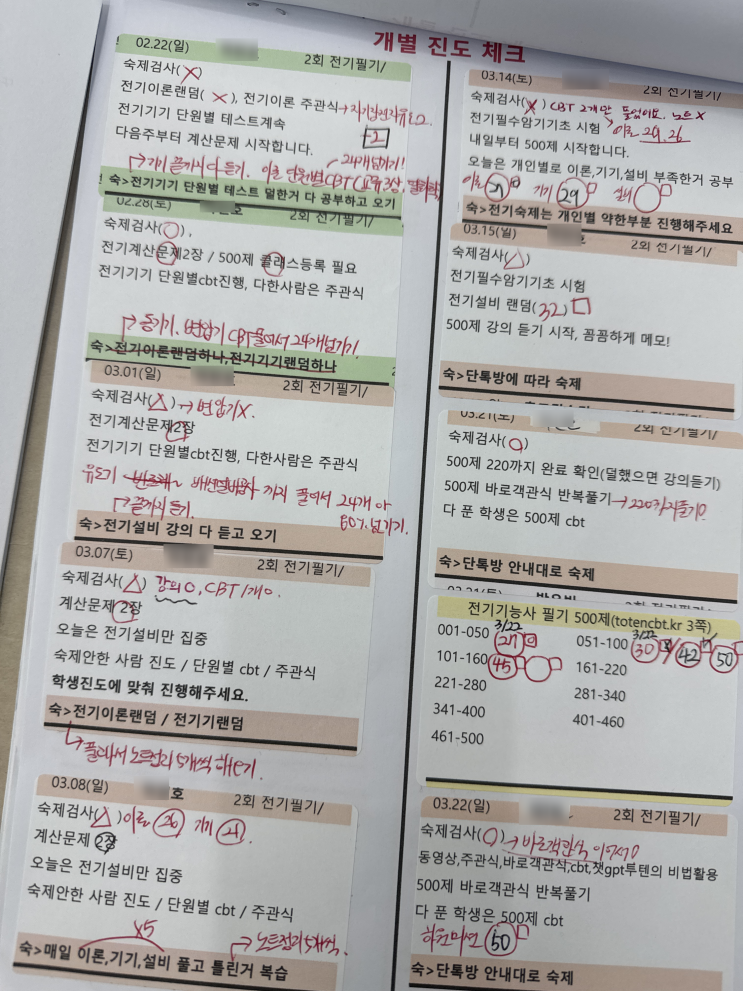 개별 진도 체크
02.22(일) 2회 전기필기/
숙제검사(X)
전기이론랜덤( X ), 전기이론 주관식→
전기기기 단원별 테스트계속
다음주부터 계산문제 시작합니다.
-2
24개넘기기!
→기기 끝까지 다 듣기. 이론 단원별CBT
숙>전기기기 단원별 테스트 덜한거 다 공부하고 오기
02.28(토) 2회 전기필기/
숙제검사(○),
전기계산문제2장 / 500제 클래스등록 필요
전기기기 단원별cbt진행, 다한사람은 주관식
→동기기. 변압기 CBT풀어서 24개넘기기.
숙>전기이론랜덤하나,전기기기랜덤하나
03.01(일) 2회 전기필기/
숙제검사(△)→변압기X.
전기계산문제2장
전기기기 단원별cbt진행, 다한사람은 주관식
유도기 까지 풀어서 24개 or
60% 넘기기.
→끝까지듣기.
숙>전기설비 강의 다 듣고 오기
03.07(토) 2회 전기필기/
숙제검사(△) 강의O, CBT 1개O.
계산문제 2장
오늘은 전기설비만 집중
숙제안한 사람 진도 / 단원별 cbt / 주관식
학생진도에 맞춰 진행해주세요.
숙>전기이론랜덤 / 전기기랜덤
→풀어서 노트정리 5개씩 해오기.
03.08(일) 호 2회 전기필기/
숙제검사(△)이론 26 기기 21
계산문제 2장
오늘은 전기설비만 집중
숙제안한 사람 진도 / 단원별 cbt / 주관식
x5
→노트정리5개씩.
숙>매일 이론,기기,설비 풀고 틀린거 복습
03.14(토) 2회 전기필기/
숙제검사(X) CBT 2개만 풀었어요. 노트X
전기필수암기기초 시험 →이론 29, 26
내일부터 500제 시작합니다.
오늘은 개인별로 이론,기기,설비 부족한거 공부
이론 21 기기 29 설비
숙>전기숙제는 개인별 약한부분 진행해주세요
03.15(일) 2회 전기필기/
숙제검사(△)
전기필수암기기초 시험
전기설비 랜덤(32)
500제 강의 듣기 시작, 꼼꼼하게 메모!
숙>단톡방에 따라 숙제
03.21(토) 2회 전기필기/
숙제검사(○)
500제 220까지 완료 확인(덜했으면 강의듣기)
500제 바로객관식 반복풀기→220까지풀기O
다 푼 학생은 500제 cbt
숙>단톡방 안내대로 숙제
전기기능사 필기 500제(totencbt.kr 3쪽)
001-050 3/22 27 051-100 3/22 30 42 50
101-160 45 161-220
221-280 281-340
341-400 401-460
461-500
03.22(일) 2회 전기필기/
숙제검사(○)→바로객관식 이어서O
동영상,주관식,바로객관식,cbt,챗gpt투텐의 비법활용
500제 바로객관식 반복풀기
다 푼 학생은 500제 cbt
50
숙>단톡방 안내대로 숙제